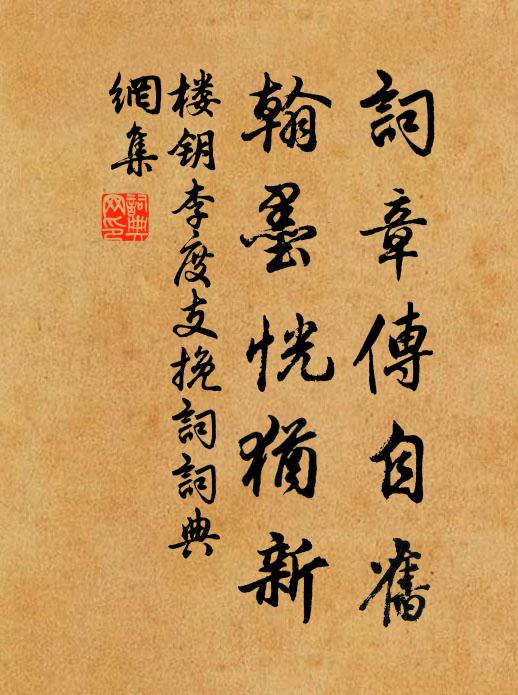 詞章傳自舊
翰墨恍猶新
楼钥李度支挽詞詞典
網集
詞典
网印